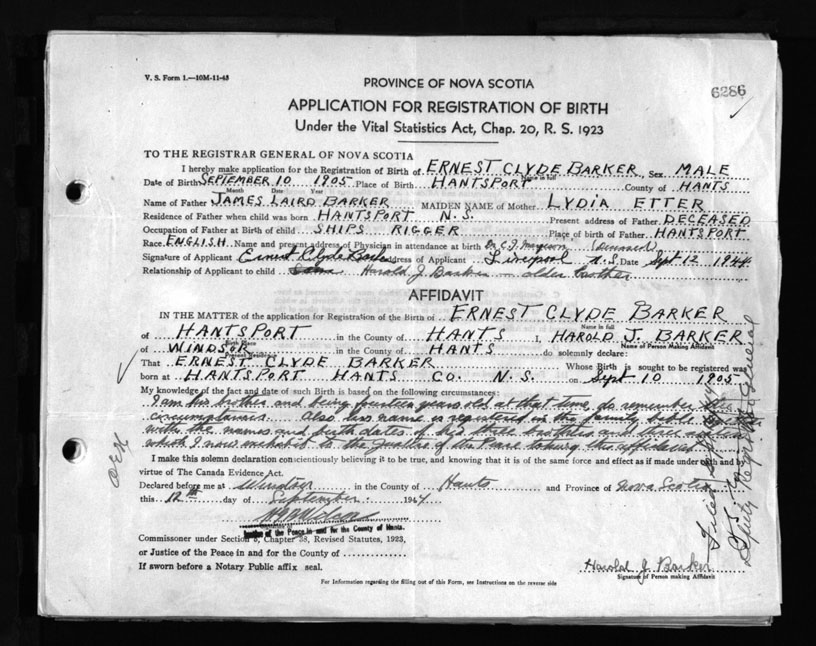 V. S. Form 1.—10M-11-43
6286
PROVINCE OF NOVA SCOTIA
APPLICATION FOR REGISTRATION OF BIRTH
Under the Vital Statistics Act, Chap. 20, R. S. 1923
TO THE REGISTRAR GENERAL OF NOVA SCOTIA
I hereby make application for the Registration of Birth of ERNEST CLYDE BARKER, Sex MALE
Name in full
Date of Birth SEPTEMBER 10 1905 Place of Birth HANTSPORT County of HANTS
Month Date Year
Name of Father JAMES LAIRD BARKER MAIDEN NAME of Mother LYDIA ETTER
Residence of Father when child was born HANTSPORT N.S. Present address of Father DECEASED
Occupation of Father at Birth of child SHIPS RIGGER Place of birth of Father HANTSPORT
Race ENGLISH Name and present address of Physician in attendance at birth Dr. C. J. (Deceased)
Signature of Applicant Ernest Clyde Barker Address of Applicant Liverpool N.S. Date Sept 12 1944
Relationship of Applicant to child Harold J. Barker — older brother
AFFIDAVIT
IN THE MATTER of the application for Registration of the Birth of ERNEST CLYDE BARKER
Name in full
of HANTSPORT in the County of HANTS I, HAROLD J. BARKER
Birth Place
Name of Person Making Affidavit
of WINDSOR in the County of HANTS do solemnly declare:
Present Residence
That ERNEST CLYDE BARKER Whose Birth is sought to be registered was
born at HANTSPORT HANTS CO. N.S. on Sept. 10 1905
My knowledge of the fact and date of such Birth is based on the following circumstances:
I am his brother and being fourteen years old at that time, do remember the
circumstances. Also his name is registered in the family bible
with the names and birth dates of his brothers and
which I now to the Justice of the Peace taking this affidavit.
I make this solemn declaration conscientiously believing it to be true, and knowing that it is of the same force and effect as if made under oath and by
virtue of The Canada Evidence Act.
Declared before me at Windsor in the County of Hants and Province of Nova Scotia
this 12th day of September 1944
Justice of the Peace in and for the County of Hants.
Commissoner under Section 5, Chapter 38, Revised Statutes, 1923,
or Justice of the Peace in and for the County of
If sworn before a Notary Public affix seal.
Harold J. Barker
Signature of Person making Affidavit
For Information regarding the filling out of this Form, see Instructions on the reverse side
Filed
Deputy Registrar General